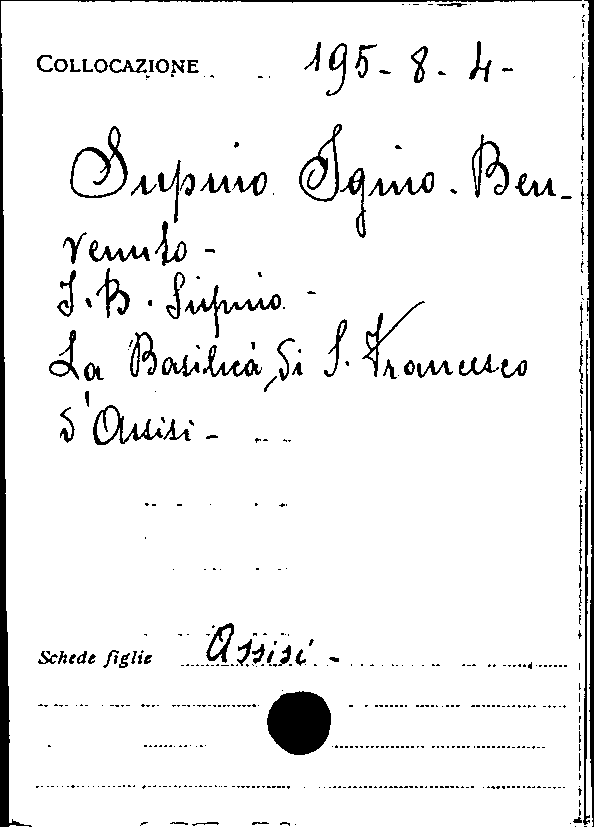 COLLOCAZIONE 195-8-4-
Supino Igino. Ben-
venuto -
I. B. Supino -
La Basilica di S. Francesco
d'Assisi -
Schede figlie Assisi -